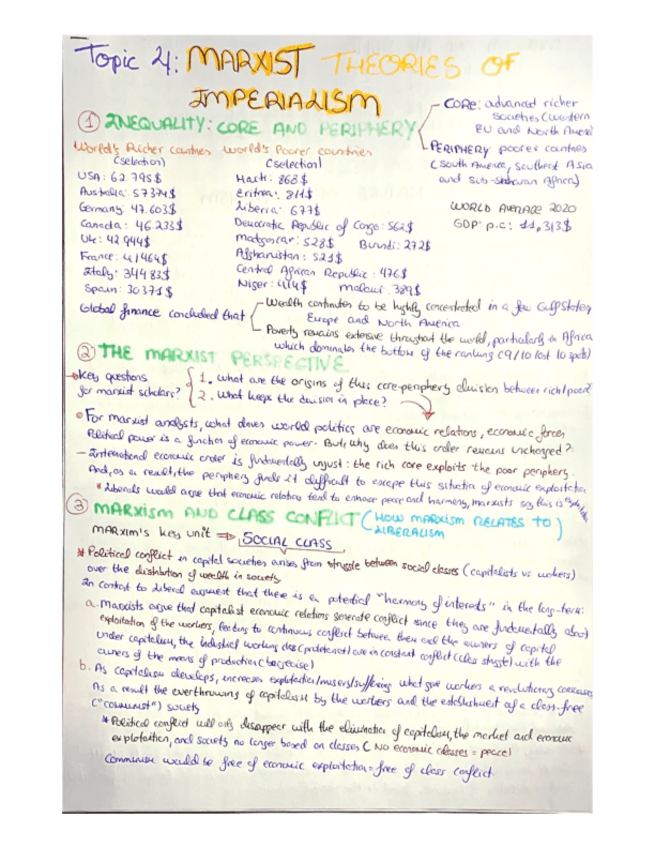 Topic 4: MARXIST THEORIES OF
IMPERIALISM
① INEQUALITY: CORE AND PERIPHERY
CORE: advanced richer
societies (western
EU and North Ameri
PERIPHERY poorer countries
(South America, southeast Asia
and sub-saharan Africa)
World's Richer countries
(selection)
USA: 62.795$
Australia: 57374$
Germany: 47.603$
Canada: 46.233$
UK: 42.944$
France: 41464$
Italy: 34483$
Spain: 30371$
World's Poorer countries
(selection)
Haiti: 868$
Eritrea: 811$
Liberia: 677$
Democratic Republic of Congo: 562$
Madagascar: 528$ Burundi: 272$
Afghanistan: 521$
Central African Republic: 476$
Niger: 414$ Malawi: 389$
WORLD AVERAGE 2020
GDP: p.c: 11,313$
Global finance concluded that
Wealth continues to be highly concentrated in a few Gulf states,
Europe and North America
Poverty remains extensive throughout the world, particularly in Africa
which dominates the bottom of the ranking (9/10 last 10 spots)
② THE MARXIST PERSPECTIVE
Key questions
for marxist scholars?
1. what are the origins of this core-periphery division between rich/poor?
2. what keeps the division in place?
For marxist analysts, what drives world politics are economic relations, economic forces
Political power is a function of economic power. But, why does this order remains unchanged?
- International economic order is fundamentally unjust: the rich core exploits the poor periphery.
And, as a result, the periphery finds it difficult to escape this situation of economic exploitation
* Liberals would argue that economic relations tend to enhance peace and harmony, marxists say this is
③ MARXISM AND CLASS CONFLICT (HOW MARXISM RELATES TO
LIBERALISM)
MARXISM's key unit ⇒ SOCIAL CLASS
* Political conflict in capital societies arises from struggle between social classes (capitalists vs workers)
over the distribution of wealth in society
In contrast to liberal argument that there is a potential "harmony of interests" in the long-term:
a. marxists argue that capitalist economic relations generate conflict since they are fundamentally about
exploitation of the workers, leading to continuous conflict between them and the owners of capital
Under capitalism, the industrial working class (proletariat) are in constant conflict (class struggle) with the
owners of the means of production (bourgeoisie)
b. As capitalism develops, increases exploitation/misery/suffering what give workers a revolutionary consciousness
As a result the overthrowing of capitalism by the workers and the establishment of a class-free
("communist") society
* Political conflict will only disappear with the elimination of capitalism, the market and economic
exploitation, and society no longer based on classes (NO economic classes = peace)
Communism would be free of economic exploitation = free of class conflict